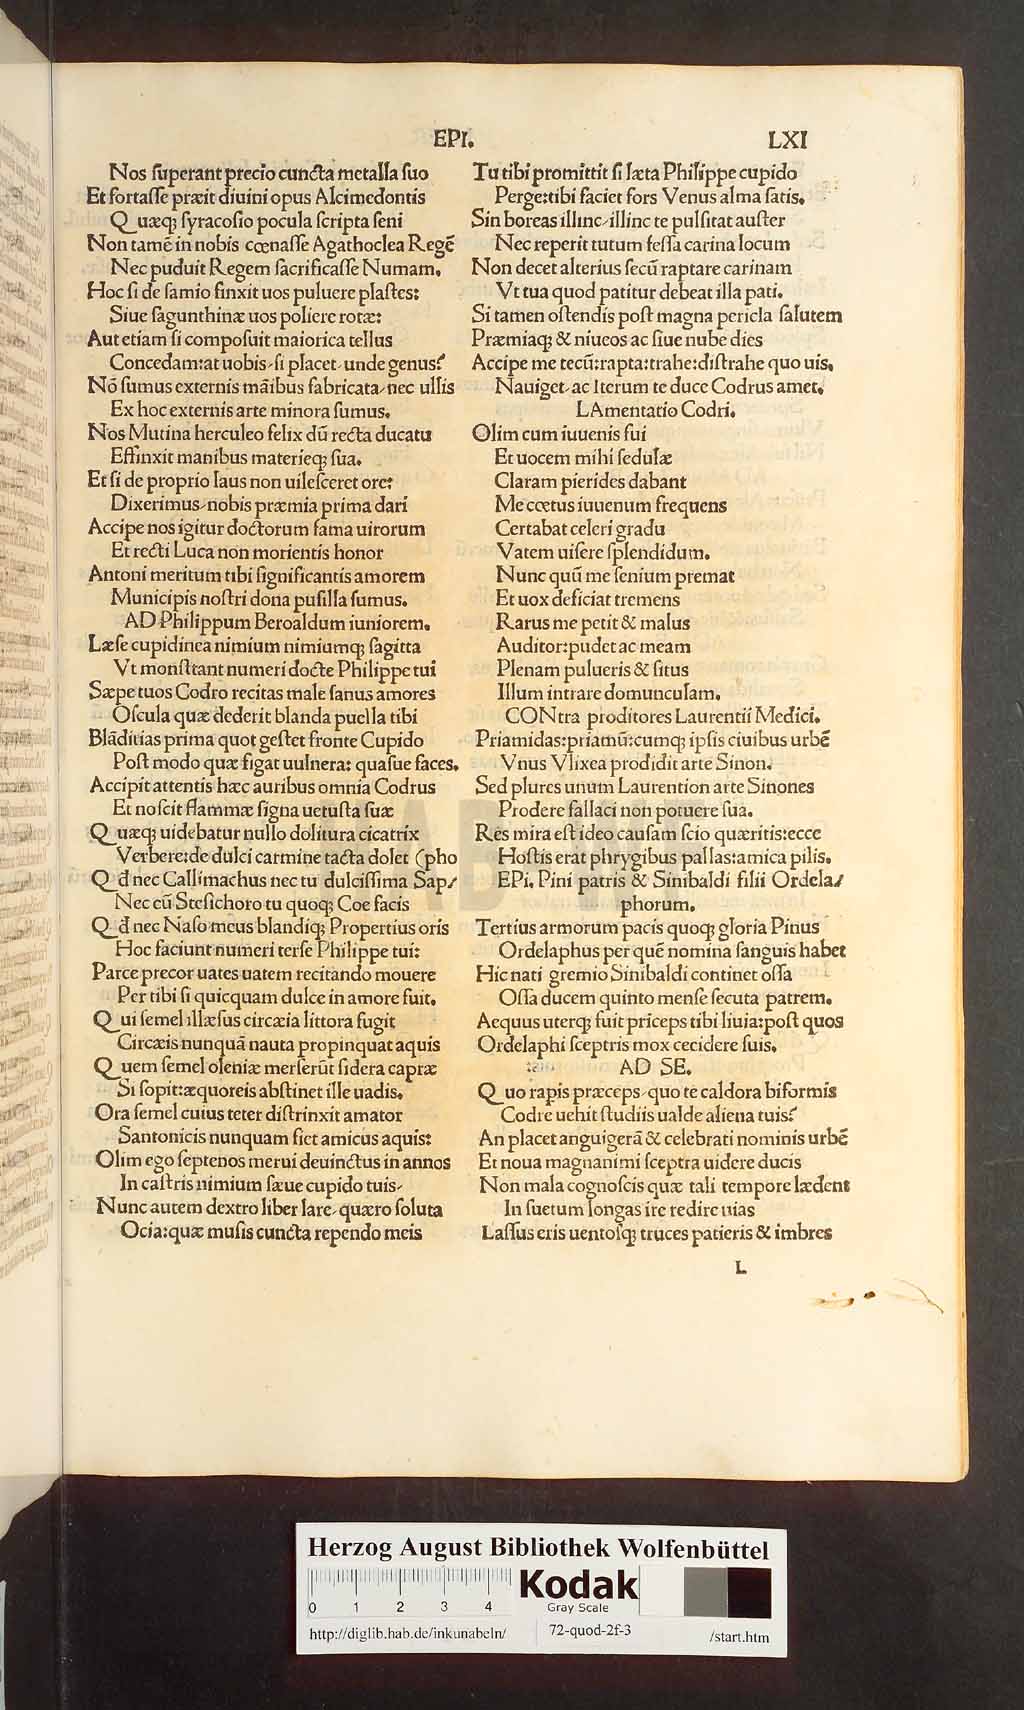 EPI.
LXI
Nos ſuperant precio cuncta metalla ſuo
Et fortaſſe præit diuini opus Alcimedontis
Quæqꝫ ſyracoſio pocula ſcripta ſeni
Non tamē in nobis cœnaſſe Agathoclea Regē
Nec puduit Regem ſacrificaſſe Numam.
Hoc ſi de ſamio finxit uos puluere plaſtes:
Siue ſagunthinæ uos poliere rotæ:
Aut etiam ſi compoſuit maiorica tellus
Concedam:at uobis/ſi placet/unde genus?
Nō ſumus externis māibus fabricata/nec ullis
Ex hoc externis arte minora ſumus.
Nos Mutina herculeo felix dū recta ducatu
Effinxit manibus materieqꝫ ſua.
Et ſi de proprio laus non uileſceret ore:
Dixerimus/nobis præmia prima dari
Accipe nos igitur doctorum fama uirorum
Et recti Luca non morientis honor
Antoni meritum tibi ſignificantis amorem
Municipis noſtri dona puſilla ſumus.
AD Philippum Beroaldum iuniorem.
Læſe cupidinea nimium nimiumqꝫ ſagitta
Vt monſtrant numeri docte Philippe tui
Sæpe tuos Codro recitas male ſanus amores
Oſcula quæ dederit blanda puella tibi
Blāditias prima quot geſtet fronte Cupido
Poſt modo quæ figat uulnera: quaſue faces.
Accipit attentis hæc auribus omnia Codrus
Et noſcit flammæ ſigna uetuſta ſuæ
Quæqꝫ uidebatur nullo dolitura cicatrix
Verbere:de dulci carmine tacta dolet (pho
Qd nec Callimachus nec tu dulciſſima Sap/
Nec cū Steſichoro tu quoqꝫ Coe facis
Qd nec Naſo meus blandiqꝫ Propertius oris
Hoc faciunt numeri terſe Philippe tui:
Parce precor uates uatem recitando mouere
Per tibi ſi quicquam dulce in amore fuit.
Qui ſemel illæſus circæia littora fugit
Circæis nunquā nauta propinquat aquis
Quem ſemel oleniæ merſerūt ſidera capræ
Si ſopit:æquoreis abſtinet ille uadis.
Ora ſemel cuius teter diſtrinxit amator
Santonicis nunquam fiet amicus aquis:
Olim ego ſeptenos merui deuinctus in annos
In caſtris nimium ſæue cupido tuis/
Nunc autem dextro liber lare/quæro ſoluta
Ocia:quæ muſis cuncta rependo meis
Tu tibi promittit ſi læta Philippe cupido
Perge:tibi faciet fors Venus alma ſatis.
Sin boreas illinc/illinc te pulſitat auſter
Nec reperit tutum feſſa carina locum
Non decet alterius ſecū raptare carinam
Vt tua quod patitur debeat illa pati.
Si tamen oſtendis poſt magna pericla ſalutem
Præmiaqꝫ & niueos ac ſiue nube dies
Accipe me tecū:rapta:trahe:diſtrahe quo uis.
Nauiget/ac Iterum te duce Codrus amet.
LAmentatio Codri.
Olim cum iuuenis fui
Et uocem mihi ſedulæ
Claram pierides dabant
Me cœtus iuuenum frequens
Certabat celeri gradu
Vatem uiſere ſplendidum.
Nunc quū me ſenium premat
Et uox deficiat tremens
Rarus me petit & malus
Auditor:pudet ac meam
Plenam pulueris & ſitus
Illum intrare domunculam.
CONtra proditores Laurentii Medici.
Priamidas:priamū:cumqꝫ ipſis ciuibus urbē
Vnus Vlixea prodidit arte Sinon.
Sed plures unum Laurention arte Sinones
Prodere fallaci non potuere ſua.
Res mira eſt ideo cauſam ſcio quæritis:ecce
Hoſtis erat phrygibus pallas:amica pilis.
EPi. Pini patris & Sinibaldi filii Ordela/
phorum.
Tertius armorum pacis quoqꝫ gloria Pinus
Ordelaphus per quē nomina ſanguis habet
Hic nati gremio Sinibaldi continet oſſa
Oſſa ducem quinto menſe ſecuta patrem.
Aequus uterqꝫ fuit prīceps tibi liuia:poſt quos
Ordelaphi ſceptris mox cecidere ſuis.
AD SE.
Quo rapis præceps/quo te caldora biformis
Codre uehit ſtudiis ualde aliena tuis?
An placet anguigerā & celebrati nominis urbē
Et noua magnanimi ſceptra uidere ducis
Non mala cognoſcis quæ tali tempore lædent
In ſuetum longas ire redire uias
Laſſus eris uentoſqꝫ truces patieris & imbres
L
HAB WF
Herzog August Bibliothek Wolfenbüttel
0 1 2 3 4
Kodak
Gray Scale
http://diglib.hab.de/inkunabeln/
72-quod-2f-3
/start.htm